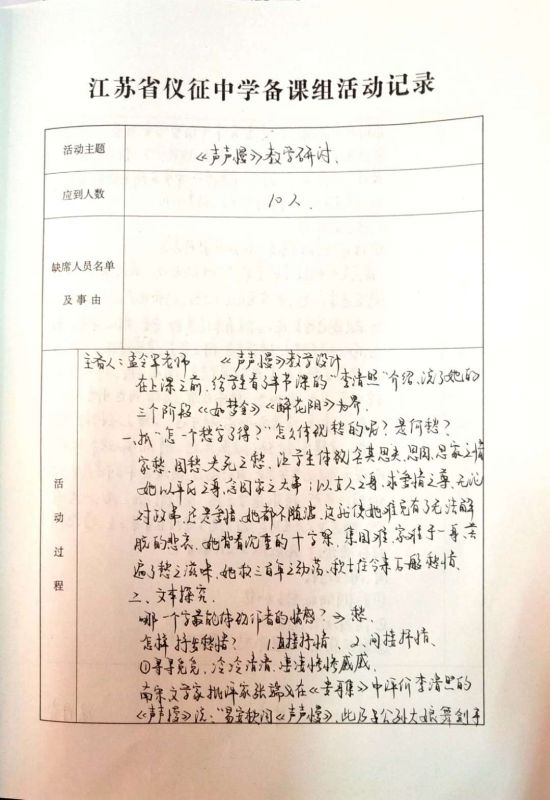 江苏省仪征中学备课组活动记录
活动主题
《声声慢》教学研讨、
应到人数
10人.
缺席人员名单
及事由
活动过程
主备人:孟令军老师 《声声慢》教学设计
在上课之前,给学生看了半节课的"李清照"介绍,说了她的
三个阶段《如梦令》《醉花阴》为界.
一、抓"怎一个愁字了得?"怎么体现愁的呢?是何愁?
家愁,国愁,夫亡之愁,让学生体悟含其思夫、思国、思家之情
她以平民之尊,念国家之大事;以女人之尊,求爱情之尊,无论
对政事,还是爱情,她都不随流,这就使她难免有了无法解
脱的悲哀,她背着沉重的十字架,集国难,家难于一身,尝
遍了愁之滋味,她敌三百年之动荡,
二、文本探究.
哪一个字最能体现作者的情感?⇒愁.
怎样抒发愁情? 1.直接抒情、2.间接抒情.
①寻寻觅觅,冷冷清清,凄凄惨惨戚戚.
南宋文学家批评家张端义在《贵耳集》中评价李清照的
《声声慢》说:"易安秋词《声声慢》,此乃公孙大娘舞剑手